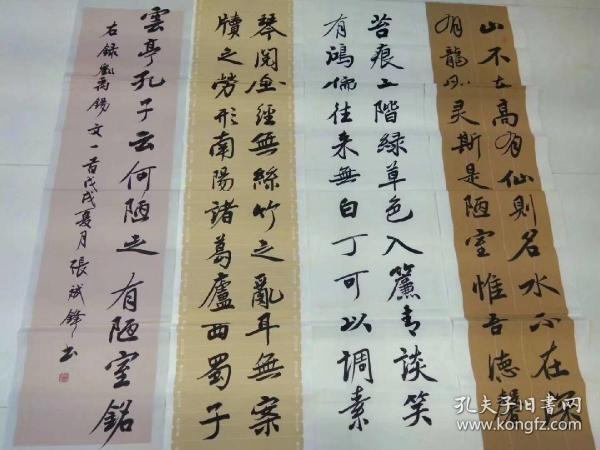 山不在高有仙則名水不在深
有龍則灵斯是陋室惟吾德馨
苔痕上階緑草色入簾青談笑
有鴻儒往来無白丁可以调素
琴閲金經無絲竹之亂耳無案
牘之勞形南陽諸葛廬西蜀子
雲亭孔子云何陋之有陋室銘
右録劉禹錫文一首戊戌夏月張斌鋒书
孔夫子旧書网
www.kongfz.com